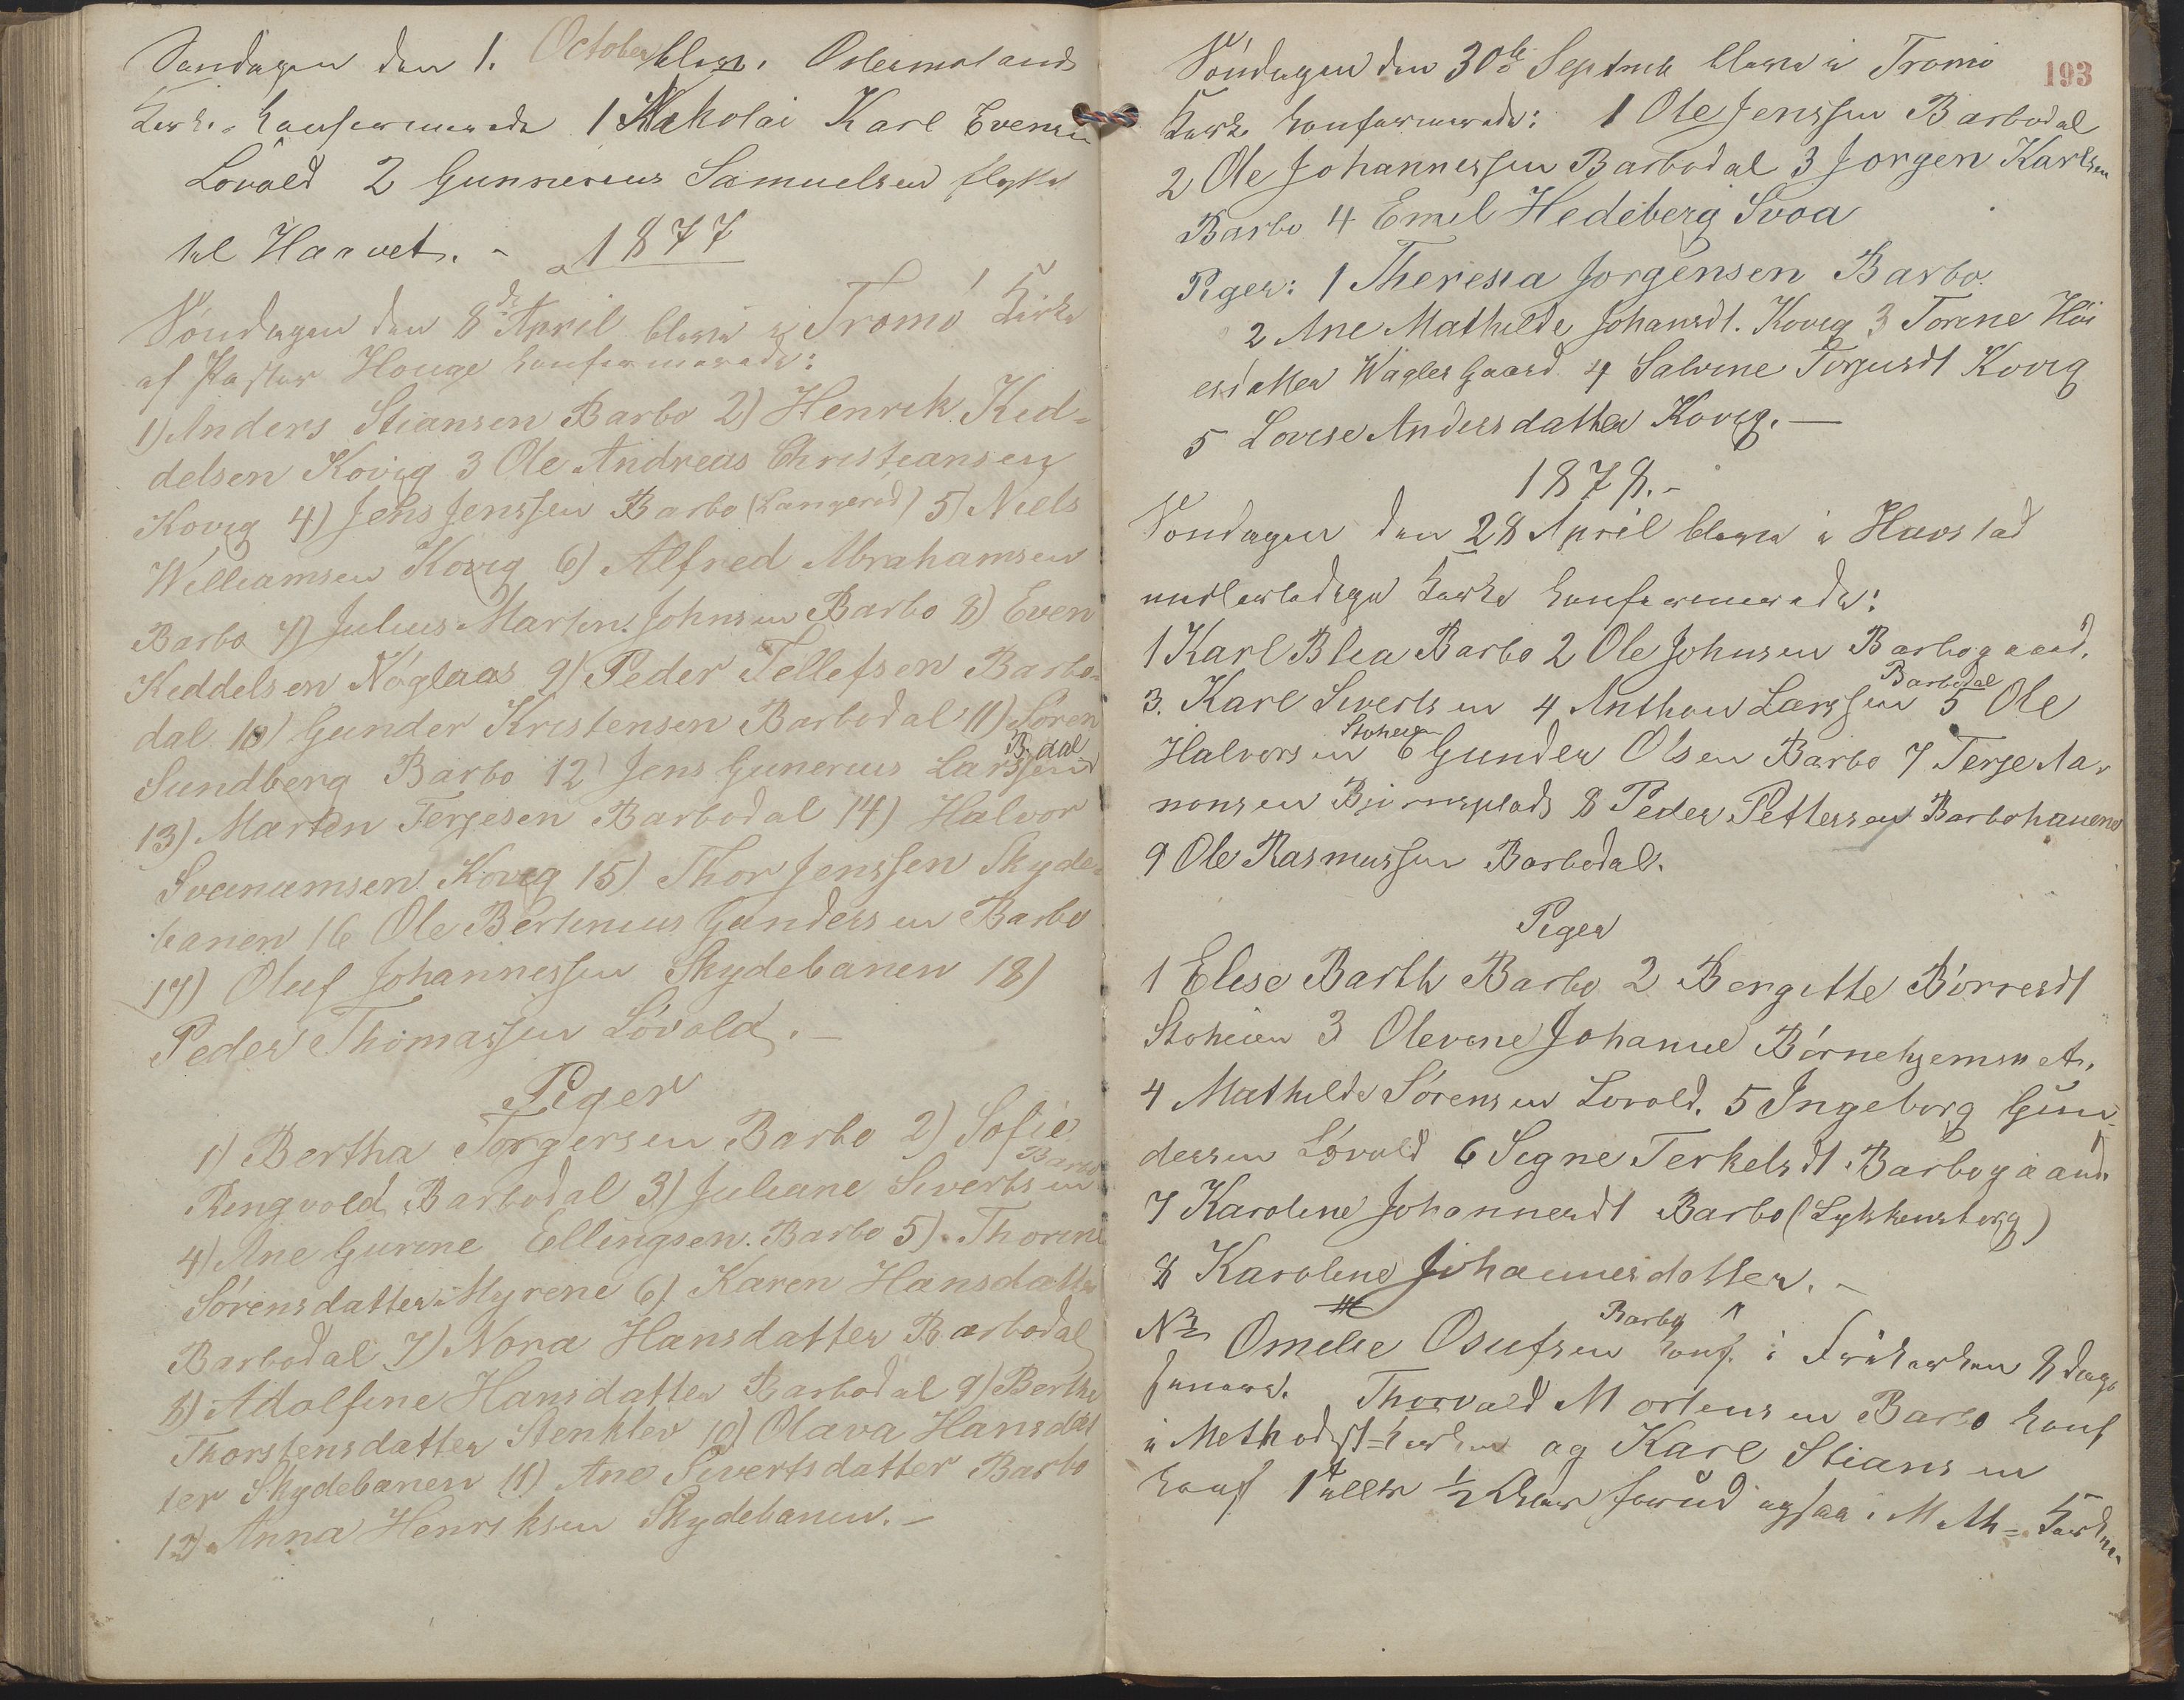 Søndagen den 1. October blev i Østermoland
Kirke konfirmerede 1 Nikolai Karl Evensen
Lövold 2 Gunnerius Samuelsen flyttet
til Haavet. -
1877
Söndagen den 8de April bleve i Tromö Kirke
af Pastor Houge konfirmerede:
1) Anders Stiansen Barbo 2) Henrik Kid-
delsen Kovig 3 Ole Andreas Christiansen
Kovig 4) Jens Jenssen Barbo (Langeröd) 5) Niels
Williamsen Kovig 6) Alfred Abrahamsen
Barbo 7) Julius Martin Johnsen Barbo 8) Even
Kiddelsen Nöglaas 9) Peder Tellefsen Barbo-
dal 10) Gunder Kristensen Barbodal 11) Sören
Sundberg Barbo 12) Jens Gunerius Larssen B.dal
13) Marten Terjesen Barbodal 14) Halvor
Svenumsen Kovig 15) Thor Jenssen Skyde-
banen 16 Ole Bertinius Gundersen Barbo
17) Oluf Johannessen Skydebanen 18)
Peder Thomassen Lövold. -
Piger
1) Bertha Torgersen Barbo 2) Sofie
Ringvold Barbodal 3) Juliane Sivertsen Barbo
4) Ane Gurine Ellingsen Barbo 5) Thorine
Sörensdatter Myrene 6) Karen Hansdatter
Barbodal 7) Nora Hansdatter Barbodal
8) Adolfine Hansdatter Barbodal 9) Berthe
Thorstensdatter Stenklev 10) Olava Hansdat
ter Skydebanen 11) Ane Sivertsdatter Barbo
12) Anna Henriksen Skydebanen. -
193
Söndagen den 30te Septmb bleve i Tromö
Kirke konfirmerede: 1 Ole Jenssen Barbodal
2 Ole Johannessen Barbodal 3 Jorgen Karlsen
Barbo 4 Emil Hedeberg Svoa
Piger: 1 Theresia Jorgensen Barbo.
2 Ane Mathilde Johansdt. Kovig 3 Torine Hös
esdatter Waglesgaard 4 Salvine Torjusdt Kovig
5 Lovise Andersdatter Kovig. -
1878. -
Söndagen den 28 April bleve i Havstad
midlertidige Kirke konfirmerede:
1 Karl Blea Barbo 2 Ole Johnsen Barbogaard.
3. Karl Sivertsen 4 Anthon Larssen Barbodal 5 Ole
Halvorsen Stoheien 6 Gunder Olsen Barbo 7 Terje Aa-
nonsen Björnsplads 8 Peder Pettersen Barbohauene
9 Ole Rasmussen Barbodal.
Piger
1 Elise Barth Barbo 2 Bergitte Börresdt
Stoheien 3 Olevine Johanne Börnehjemmet.
4 Mathilde Sörensen Lovold. 5 Ingeborg Gun-
dersen Lövold 6 Signe Terkelsdt Barbogaard
7 Karoline Johannesdt Barbo (Lykkensborg)
8 Karoline Johannesdatter. -
NB Omelie Osufsen Barbo konf. i Frikirken 8 dage
senere. Thorvald Mortensen Barbo konf
i Methodistkirken og Karl Stiansen
konf 1 eller 1/2 Aar forud ogsaa i Meth-Kirken.